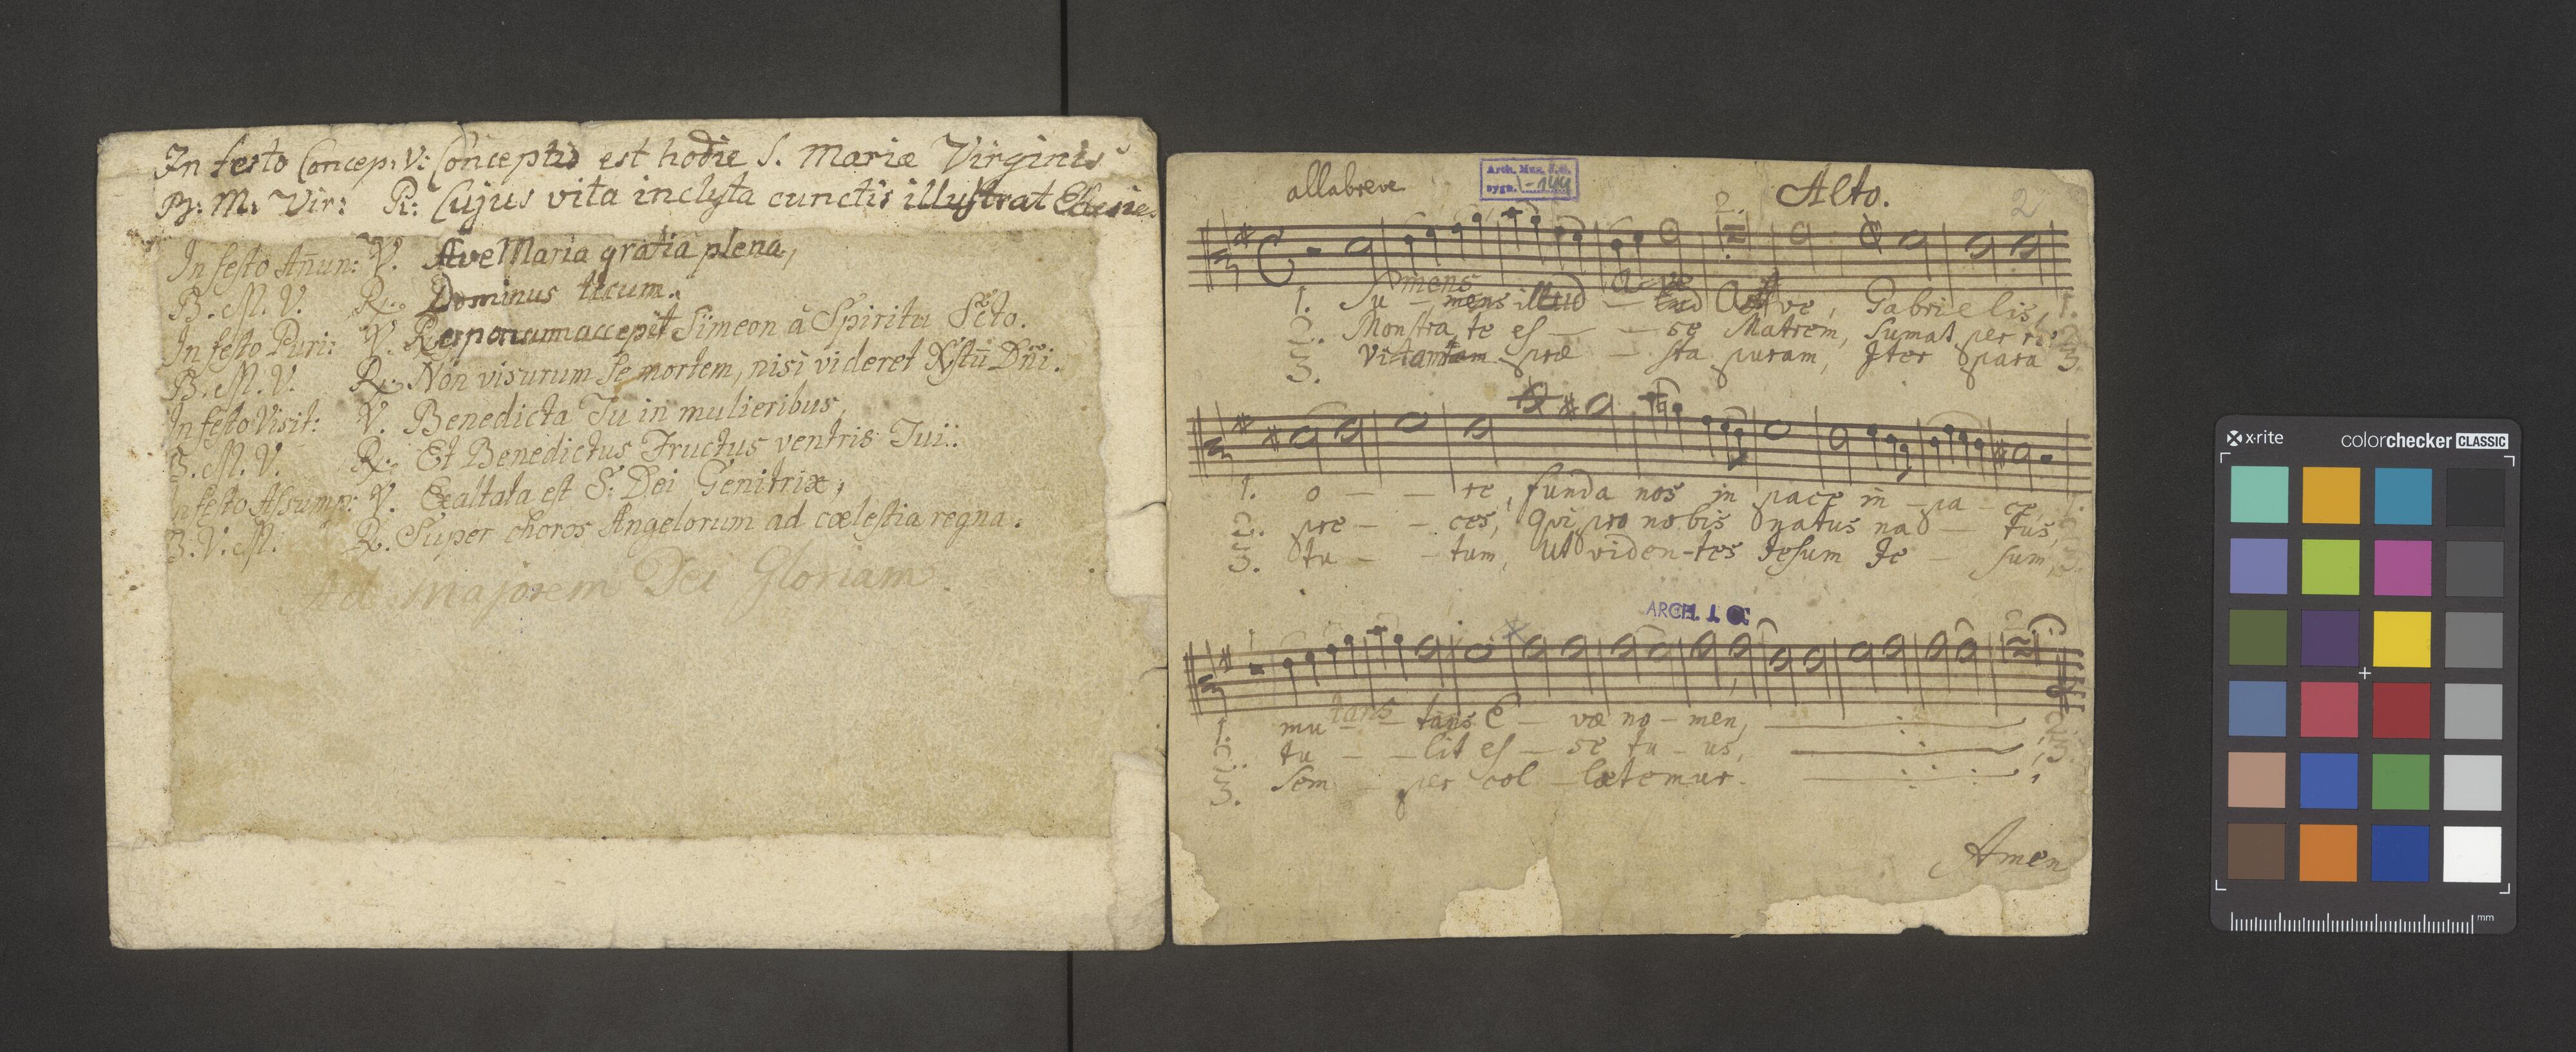 In festo Concep: V: Conceptio est hodie S. Mariæ Virginis
B: M: Vir: R: Cujus vita inclyta cunctis illustrat Ecclesies
In festo Añun: V. Ave Maria gratia plena,
B. M. V. R. Dominus tecum.
In festo Puri: V. Responsum accepit Simeon à Spiritu Scto.
B. M. V. R. Non visurum se mortem, nisi videret Xstũ Dñi.
In festo Visit: V. Benedicta Tu in mulieribus,
B. M. V. R. Et Benedictus Fructus ventris Tui.
In festo Assump: V. Exaltata est S. Dei Genitrix,
B. V. M. R. Super choros Angelorum ad cœlestia regna.
Ad majorem Dei Gloriam
allabreve
Arch. Muz. J.G.
sygn. I-144
Alto.
2
2.
mens a ve
1. Su - mens illud - Ave, Gabrielis, 1.
2. Monstra te es - - se Matrem, sumat per te 2
3. Vitam præ - sta puram, Iter para 3.
1. o - - re, funda nos in pace in - pa - ce, 1.
2. pre - - ces, qui pro nobis natus na - tus, 2
3. tu - - tum, Ut viden-tes Jesum Je - sum, 3.
ARCH. J. G
tans
1. mu - - tans E - væ no - men, 2.
2. tu - - lit es - se tu - us, 3.
3. Sem - per col - lætemur.
Amen
x-rite colorchecker CLASSIC
mm